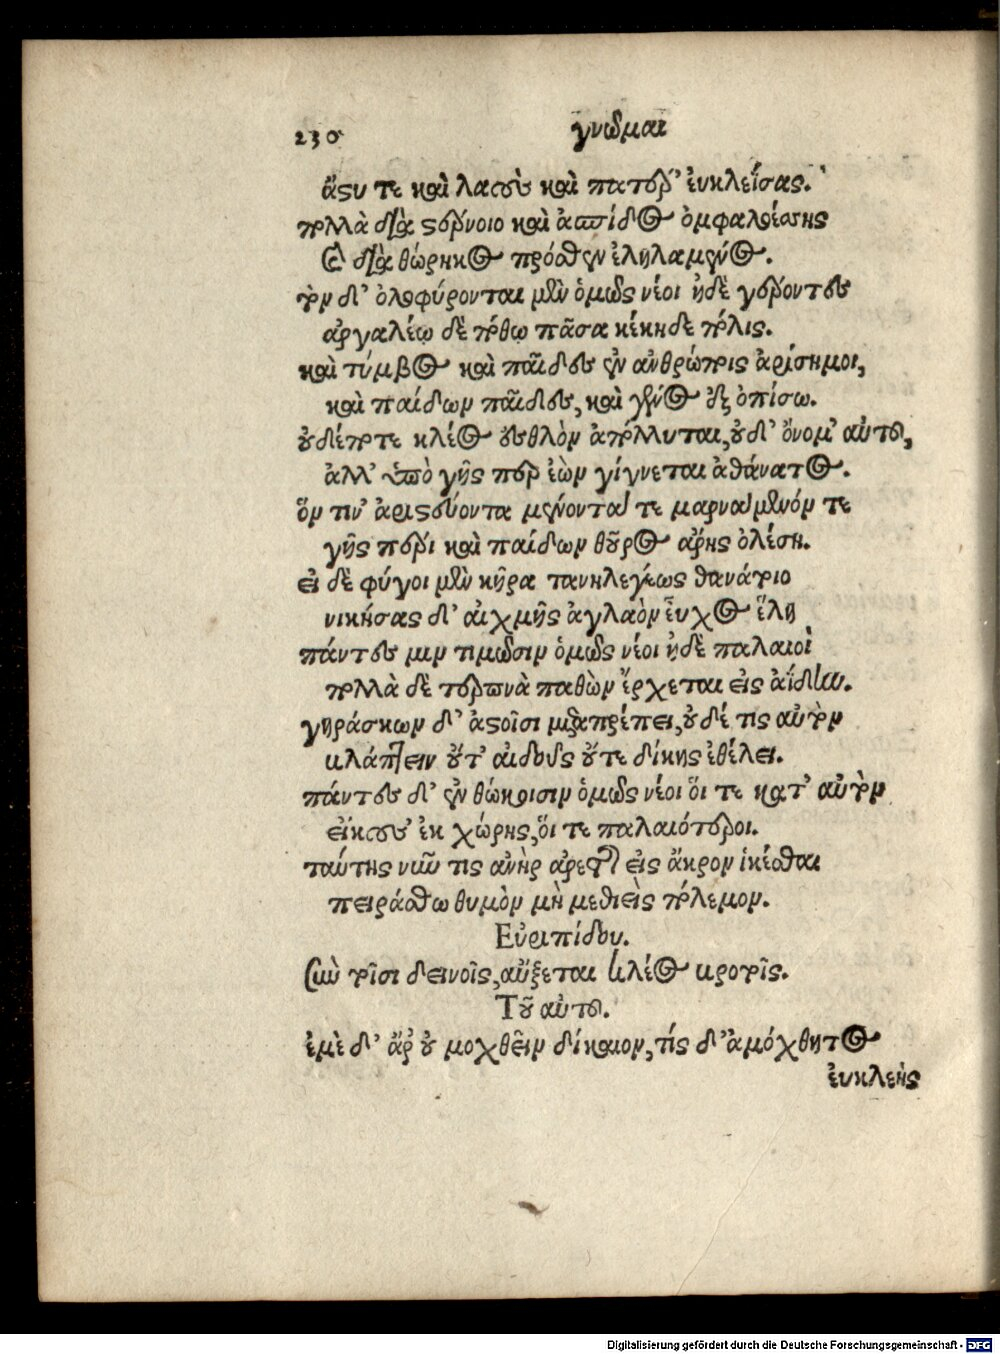 230 γνῶμαι
ἄστυ τε καὶ λαοὺς καὶ πατέρ' ἐυκλεΐσας.
πολλὰ διὰ στέρνοιο καὶ ἀσπίδος ὀμφαλοέσσης
καὶ διὰ θώρηκος πρόσθεν ἐληλαμένος.
τὸν δ' ὀλοφύρονται μὲν ὁμῶς νέοι ἠδὲ γέροντες
ἀργαλέῳ δὲ πόθῳ πᾶσα κέκηδε πόλις.
καὶ τύμβος καὶ παῖδες ἐν ἀνθρώποις ἀρίσημοι,
καὶ παίδων παῖδες, καὶ γένος ἐξ ὀπίσω.
οὐδέποτε κλέος ἐσθλὸν ἀπόλλυται, οὐδ' ὄνομ' αὐτοῦ,
ἀλλ' ὑπὸ γῆς περ ἐὼν γίγνεται ἀθάνατος.
ὅν τιν' ἀριστεύοντα μένοντά τε μαρνάμενόν τε
γῆς πέρι καὶ παίδων θοῦρος ἄρης ὀλέση.
εἰ δὲ φύγοι μὲν κῆρα τανηλεγέως θανάτοιο
νικήσας δ' αἰχμῆς ἀγλαὸν εὖχος ἕλη
πάντες μιν τιμῶσιν ὁμῶς νέοι ἠδὲ παλαιοὶ
πολλὰ δὲ τερπνὰ παθὼν ἔρχεται εἰς ἀΐδην.
γηράσκων δ' ἀστοῖσι μεταπρέπει, οὐδέ τις αὐτὸν
βλάπτειν οὔτ' αἰδοῦς οὔτε δίκης ἐθέλει.
πάντες δ' ἐν θώκοισιν ὁμῶς νέοι ὅι τε κατ' αὐτὸν
εἴκουσ' ἐκ χώρης, ὅι τε παλαιότεροι.
ταύτης νῦν τις ἀνὴρ ἀρετῆς εἰς ἄκρον ἱκέσθαι
πειράσθω θυμὸν μὴ μεθιεὶς πόλεμον.
Εὐριπίδου.
Σὺν τοῖσι δεινοῖς, αὔξεται κλέος βροτοῖς.
Τοῦ αὐτοῦ.
ἐμὲ δ' ἄρ' οὐ μοχθεῖν δίκαιον, τίς δ' ἀμόχθητος
ἐυκλεὴς
Digitalisierung gefördert durch die Deutsche Forschungsgemeinschaft - DFG